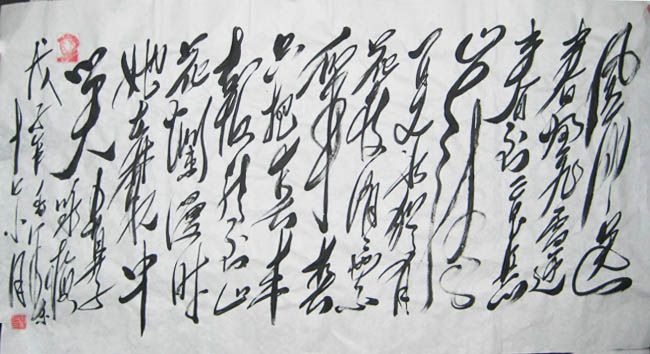 风雨送
春归飞雪迎
春到已是悬
崖百
丈冰犹有
花枝俏
争春
只把春来
报待到山
花烂漫时
她在丛中
笑
咏梅
戊子年